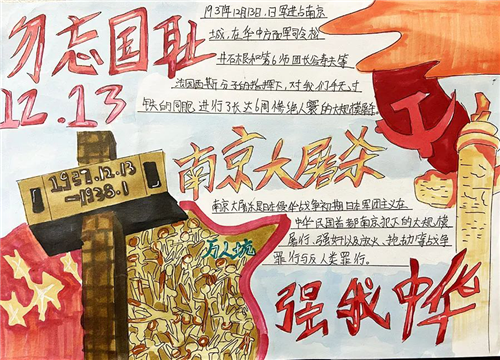 勿忘国耻
12.13
1937年12月13日,日军进占南京
城,在华中方面军司令松
井石根和第6师团长谷寿夫等
法西斯分子的指挥下,对我们手无寸
铁的同胞,进行了长达6周惨绝人寰的大规模屠杀
南京大屠杀
1937.12.13
-1938.1
南京大屠杀是日本侵华战争初期日本军国主义在
中华民国首都南京犯下的大规模
屠杀、强奸以及放火、抢劫等战争
罪行与反人类罪行。
万人坑
强我中华